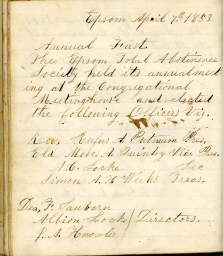 Epsom April 7th 1853
Annual Fast.
The Epsom Total Abstinence
Society held its annual meet
ing at the Congregational
Meetinghouse and elected
the following Officers Viz.
Rev. Rufus A Putnam Pres.
Eld. Moses A Quimby Vice Pres.
A. C. Locke Sec
Simon A. Treas.
Dea. F. Sanborn
Albion Locke Directors.
J. A. Knowles